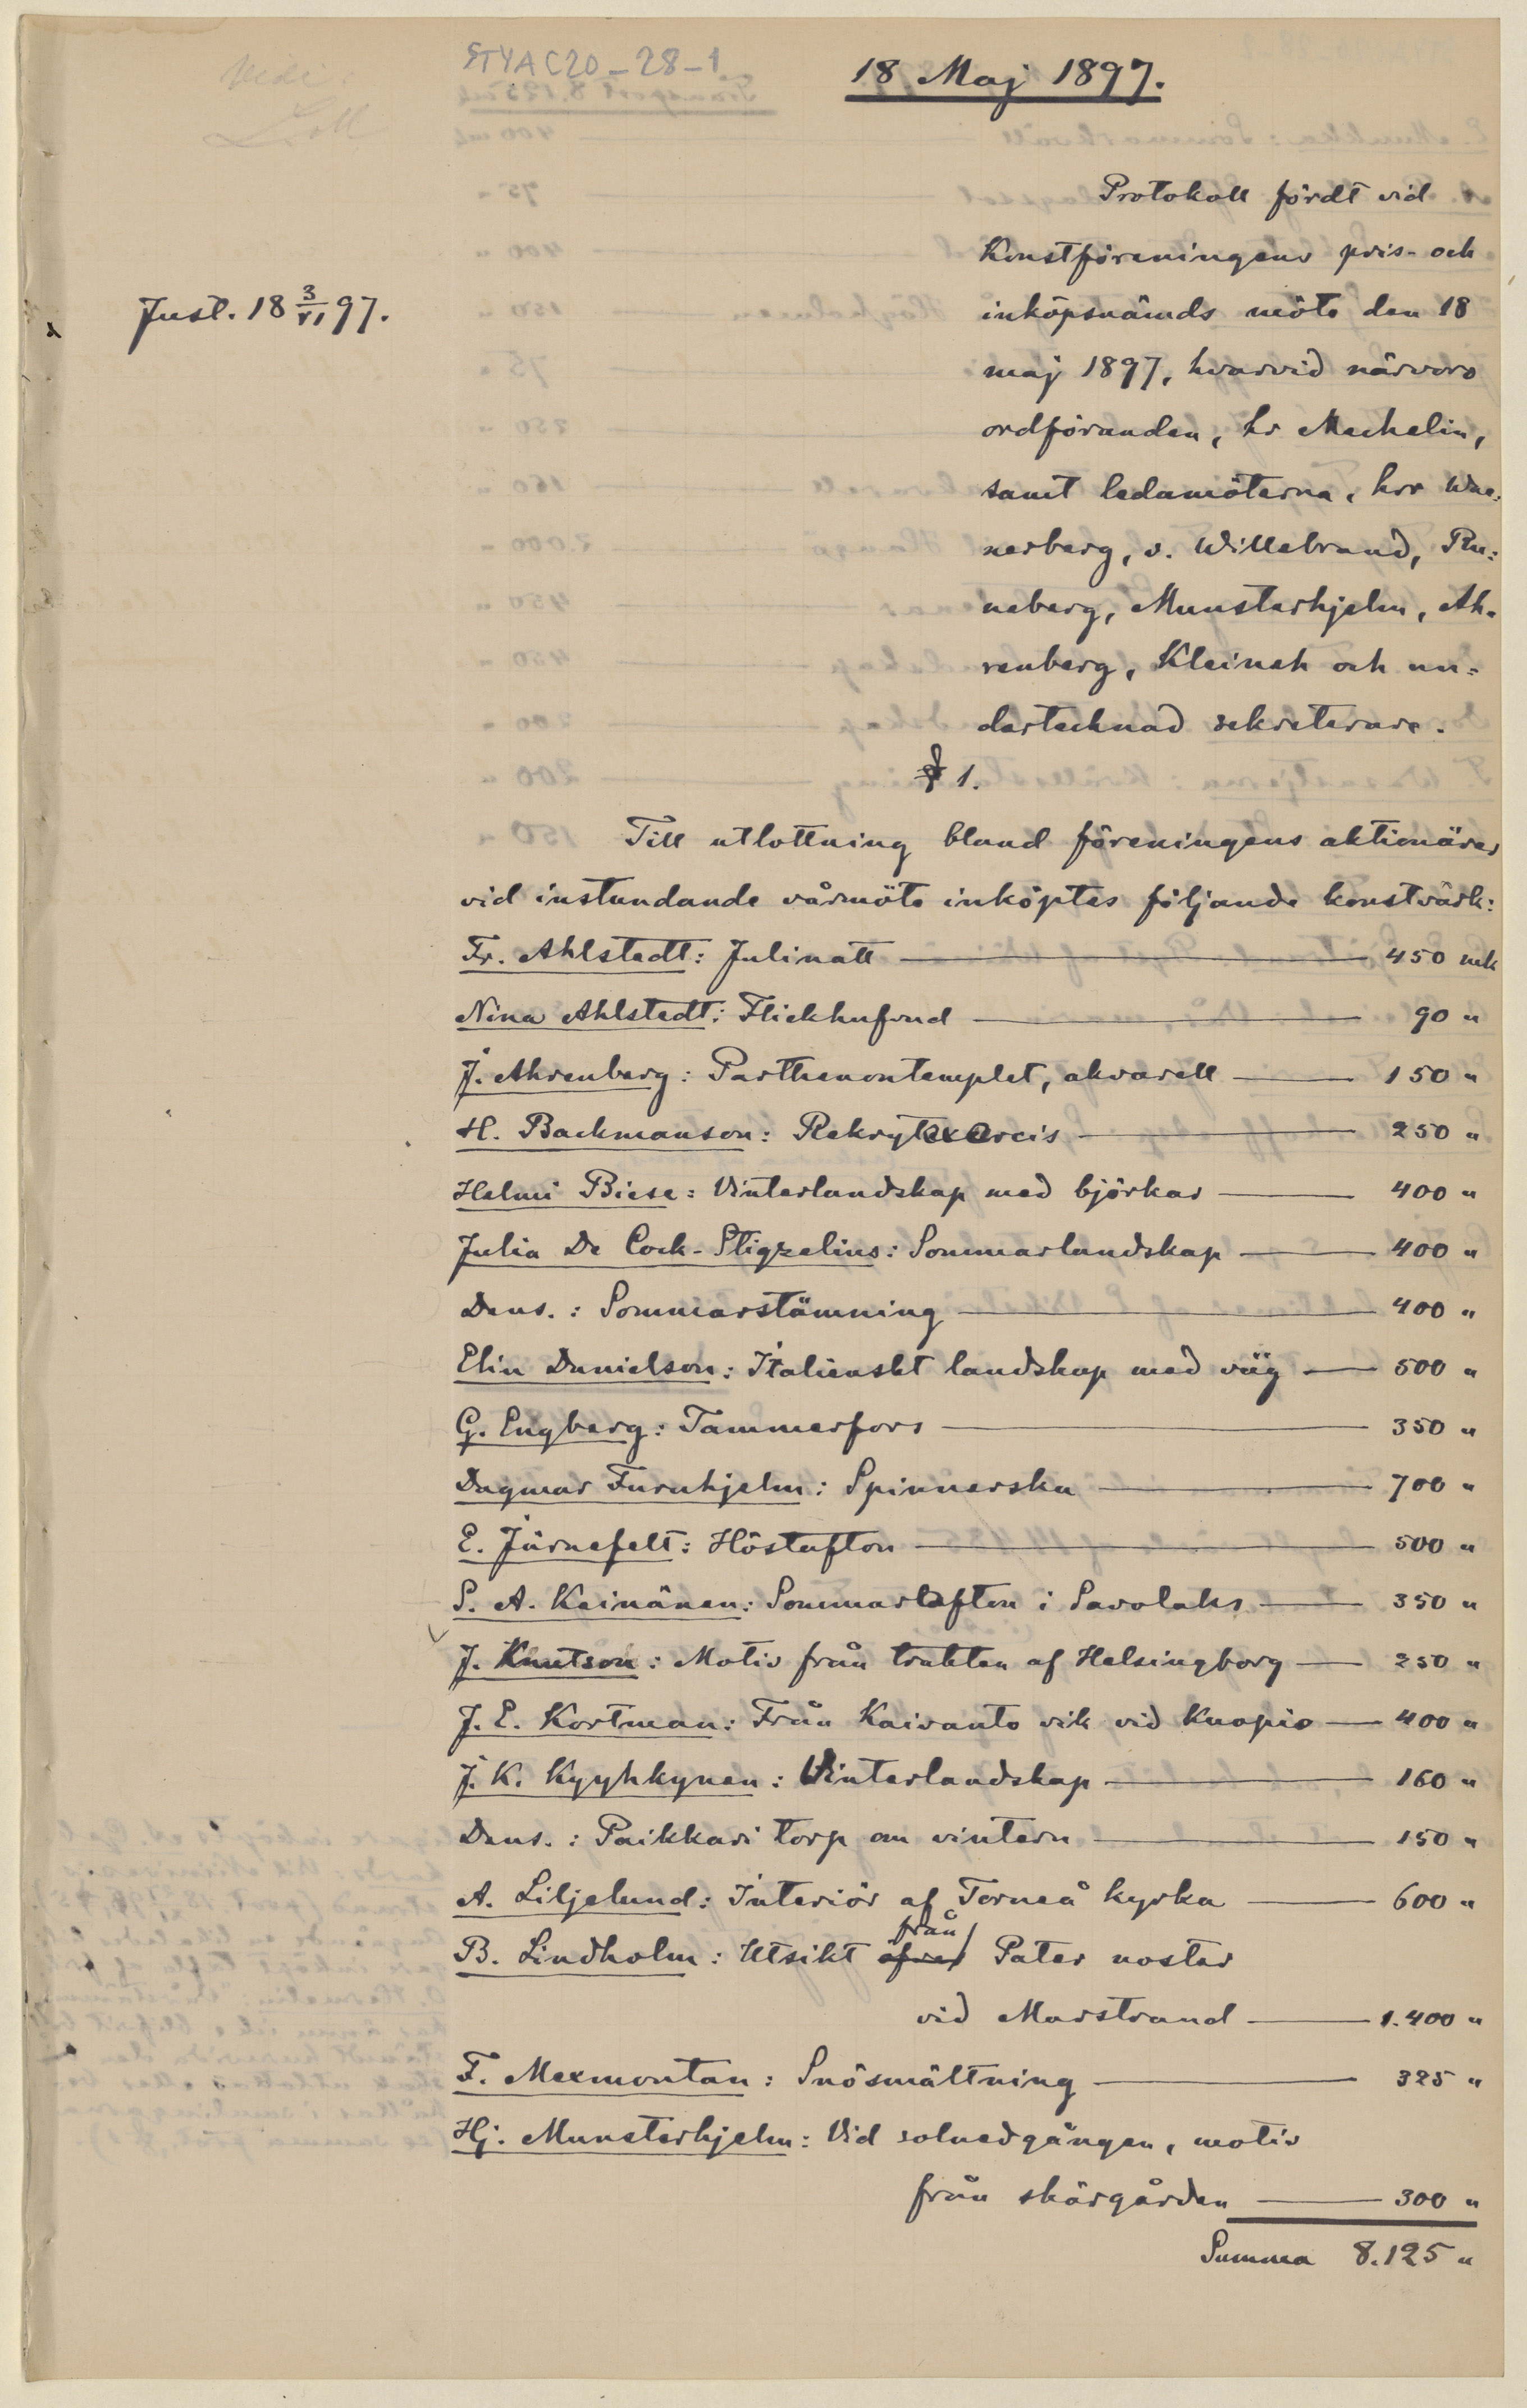 STYAC20-28-1
18 Maj 1897.
Just. 18 3/VI 97.
Protokoll fördt vid
Konstföreningens pris- och
inköpsnämds möte den 18
maj 1897, hvarvid närvoro
ordföranden, hr Mechelin,
samt ledamöterna, hrr Wae-
nerberg, v. Willebrand, Ru-
neberg, Munsterhjelm, Ah-
renberg, Kleineh och un-
dertecknad sekreterare.
§ 1.
Till utlottning bland föreningens aktionärer
vid instundande vårmöte inköptes följande konstvärk:
Fr. Ahlstedt: Julinatt — 450 mk
Nina Ahlstedt: Flickhufvud — 90 "
J. Ahrenberg: Parthenontemplet, akvarell — 150 "
H. Backmanson: Rekrytexercis — 250 "
Helmi Biese: Vinterlandskap med björkar — 400 "
Julia De Cock-Stigzelius: Sommarlandskap — 400 "
Dens.: Sommarstämning — 400 "
Elin Danielson: Italienskt landskap med väg — 500 "
G. Engberg: Tammerfors — 350 "
Dagmar Furuhjelm: Spinnerska — 700 "
E. Järnefelt: Höstafton — 500 "
S. A. Keinänen: Sommarafton i Savolaks — 350 "
J. Knutson: Motiv från trakten af Helsingborg — 250 "
J. E. Kortman: Från Kaivanto vik vid Kuopio — 400 "
J. K. Kyyhkynen: Vinterlandskap — 160 "
Dens.: Paikkari torp om vintern — 150 "
A. Liljelund: Interiör af Torneå kyrka — 600 "
B. Lindholm: Utsikt från Pater noster
vid Marstrand — 1.400 "
F. Mexmontan: Snösmältning — 325 "
Hj. Munsterhjelm: Vid solnedgången, motiv
från skärgården — 300 "
Summa 8.125 "